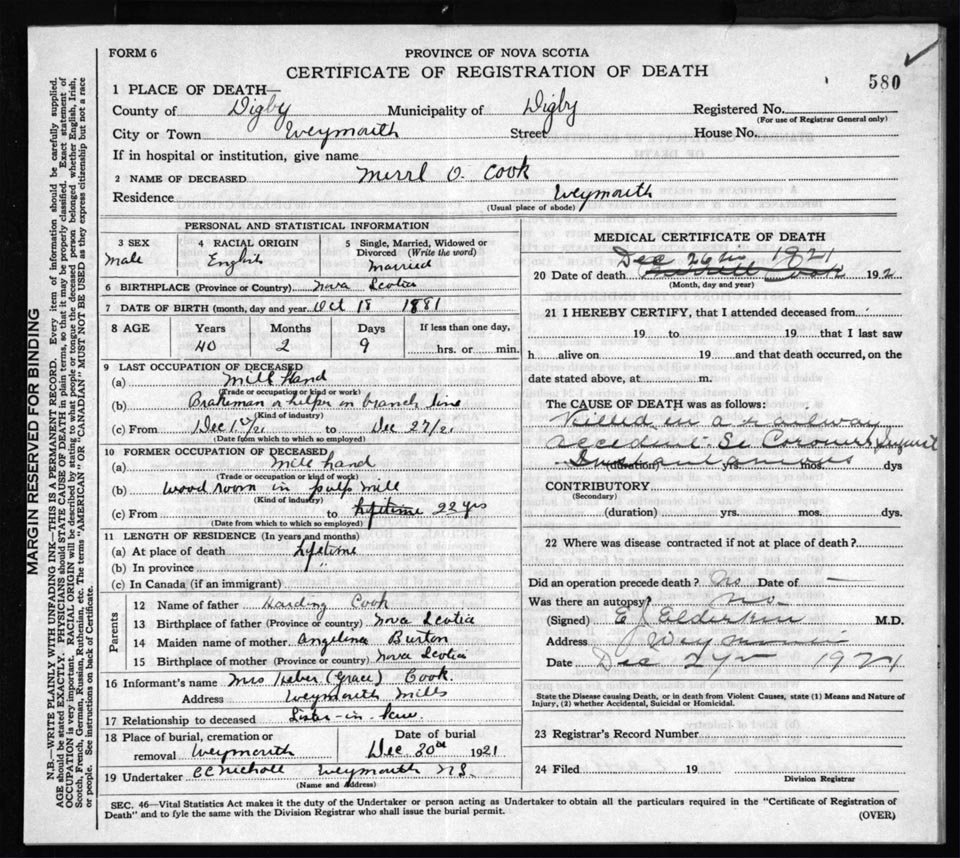 FORM 6
PROVINCE OF NOVA SCOTIA
CERTIFICATE OF REGISTRATION OF DEATH
580
1 PLACE OF DEATH—
County of Digby Municipality of Digby Registered No.
(For use of Registrar General only)
City or Town Weymouth Street House No.
If in hospital or institution, give name
2 NAME OF DECEASED Merrl O. Cook
Residence Weymouth
(Usual place of abode)
PERSONAL AND STATISTICAL INFORMATION
3 SEX
Male
4 RACIAL ORIGIN
English
5 Single, Married, Widowed or
Divorced (Write the word)
Married
6 BIRTHPLACE (Province or Country) Nova Scotia
7 DATE OF BIRTH (month, day and year Oct 18 1881
8 AGE Years Months Days If less than one day,
40 2 9 hrs. or min.
9 LAST OCCUPATION OF DECEASED
(a) Mill Hand
(Trade or occupation or kind or work)
(b) Brakeman or helper on branch line
(Kind of industry)
(c) From Dec 1st/21 to Dec 27/21
(Date from which to which so employed)
10 FORMER OCCUPATION OF DECEASED
(a) Mill hand
(Trade or occupation or kind of work)
(b) Wood room in pulp mill
(Kind of industry)
(c) From to lifetime 22 yrs
(Date from which to which so employed)
11 LENGTH OF RESIDENCE (In years and months)
(a) At place of death Lifetime
(b) In province "
(c) In Canada (if an immigrant)
Parents
12 Name of father Harding Cook
13 Birthplace of father (Province or country) Nova Scotia
14 Maiden name of mother Angelina Burton
15 Birthplace of mother (Province or country) Nova Scotia
16 Informant's name Mrs Heber (Grace) Cook.
Address Weymouth Mills
17 Relationship to deceased Sister-in-law.
18 Place of burial, cremation or
removal Weymouth
Date of burial
Dec 30th 1921
19 Undertaker CC Nicholl Weymouth N.S.
(Name and Address)
MEDICAL CERTIFICATE OF DEATH
20 Date of death 192
(Month, day and year)
21 I HEREBY CERTIFY, that I attended deceased from
19 to 19 that I last saw
h alive on 19 and that death occurred, on the
date stated above, at m.
The CAUSE OF DEATH was as follows:
Killed in a railway
accident. Se Coroners Inquest
Instantaneous
(duration) yrs. mos. dys
CONTRIBUTORY
(Secondary)
(duration) yrs. mos. dys.
22 Where was disease contracted if not at place of death?
Did an operation precede death? No Date of —
Was there an autopsy? No.
(Signed) E J Elderkin M.D.
Address Weymouth
Date Dec 1921
State the Disease causing Death, or in death from Violent Causes, state (1) Means and Nature of
Injury, (2) whether Accidental, Suicidal or Homicidal.
23 Registrar's Record Number
24 Filed 19
Division Registrar
SEC. 46—Vital Statistics Act makes it the duty of the Undertaker or person acting as Undertaker to obtain all the particulars required in the "Certificate of Registration of
Death" and to fyle the same with the Division Registrar who shall issue the burial permit.
(OVER)
MARGIN RESERVED FOR BINDING
N.B.—WRITE PLAINLY WITH UNFADING INK—THIS IS A PERMANENT RECORD. Every item of information should be carefully supplied.
AGE should be stated EXACTLY. PHYSICIANS should STATE CAUSE OF DEATH in plain terms, so that it may be properly classified. Exact statement of
OCCUPATION is very important. RACIAL ORIGIN will be described by stating to what people or tongue the deceased person belonged whether English, Irish,
Scotch, French, German, Russian, Ruthenian, etc. The terms "AMERICAN" OR "CANADIAN" MUST NOT BE USED as they express citizenship but not a race
or people. See instructions on back of Certificate.